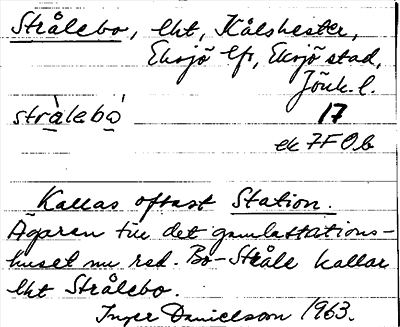 Strålebo, lht, Kålshester,
Eksjö lfs, Eksjö stad,
Jönk. l.
strålebo 17
ek 7F 0b
Kallas oftast Station.
Ägaren till det gamla stations-
huset nu red. Bo-Stråle kallar
lht Strålebo.
Inger Danielsson 1963.